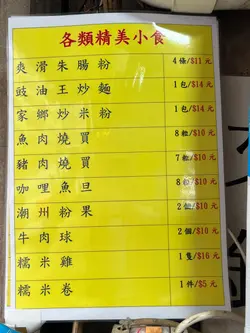 各類精美小食
爽滑朱腸粉 4條/$11元
豉油王炒麵 1包/$14元
家鄉炒米粉 1包/$14元
魚肉燒買 8粒/$10元
豬肉燒買 7粒/$10元
咖哩魚旦 8粒/$10元
潮州粉果 2個/$10元
牛肉球 2個/$10元
糯米雞 1隻/$16元
糯米卷 1件/$5元